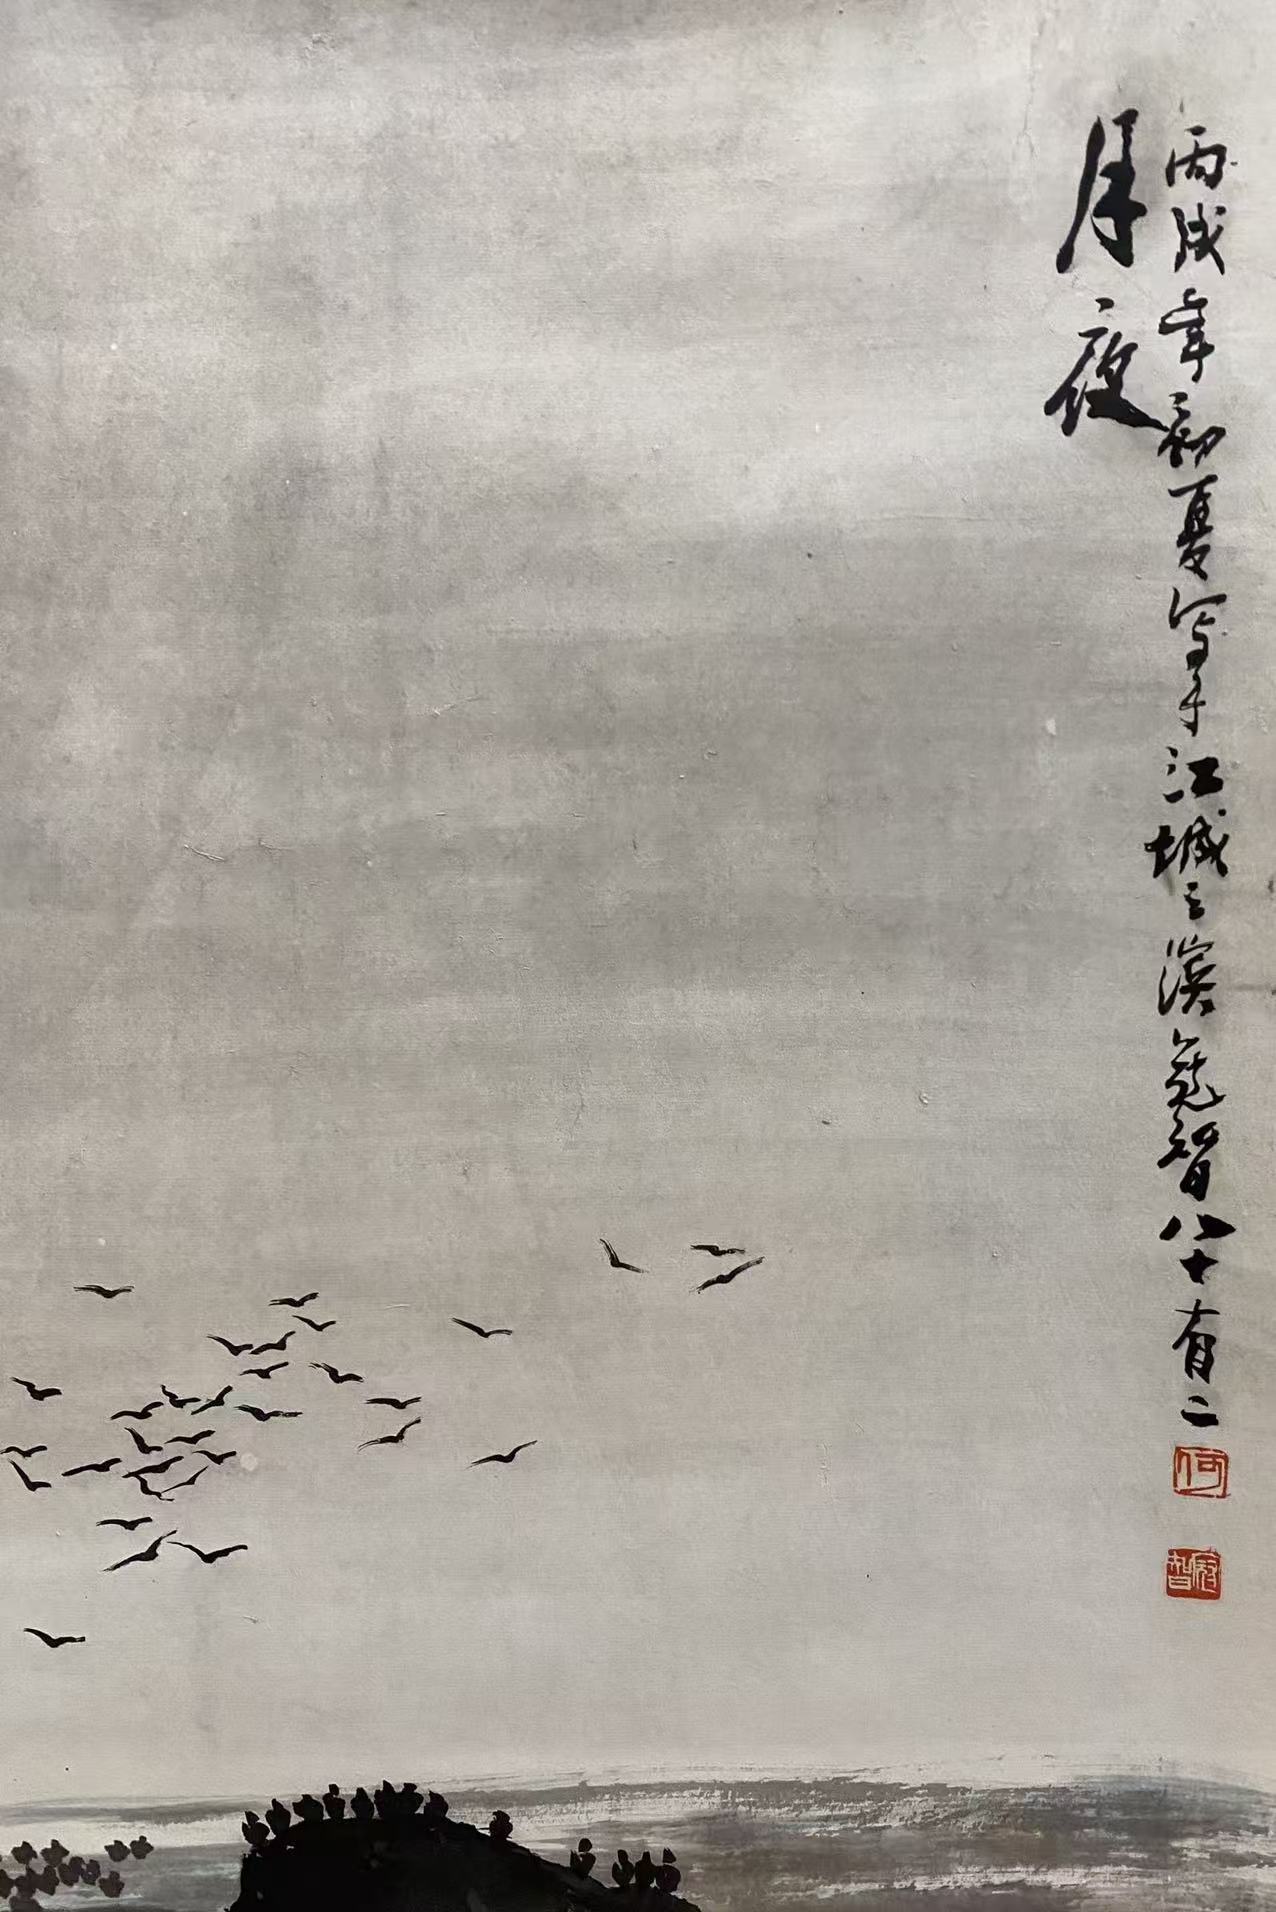 丙戌年初夏写于江城之滨智八十有二
月夜
何
智